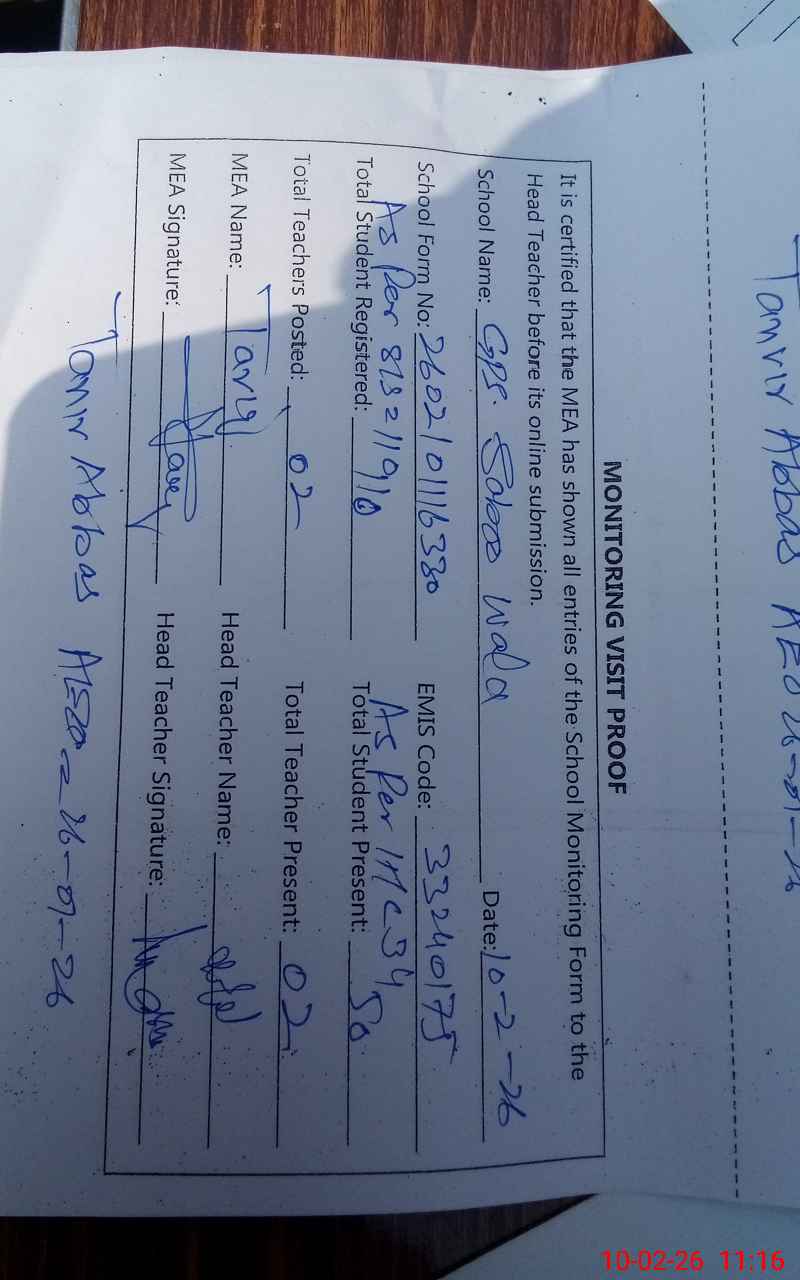 Tanvir Abbas AEO 26-01-26
MONITORING VISIT PROOF
It is certified that the MEA has shown all entries of the School Monitoring Form to the
Head Teacher before its online submission.
School Name: GPS. Wala Date: 10-2-26
School Form No: 2602101116330 EMIS Code: 33240175
As Per As Per
Total Student Registered: Total Student Present: 50
Total Teachers Posted: 02 Total Teacher Present: 02
MEA Name: Tariq Head Teacher Name:
MEA Signature: Head Teacher Signature:
Tanvir Abbas 26-01-26
10-02-26 11:16